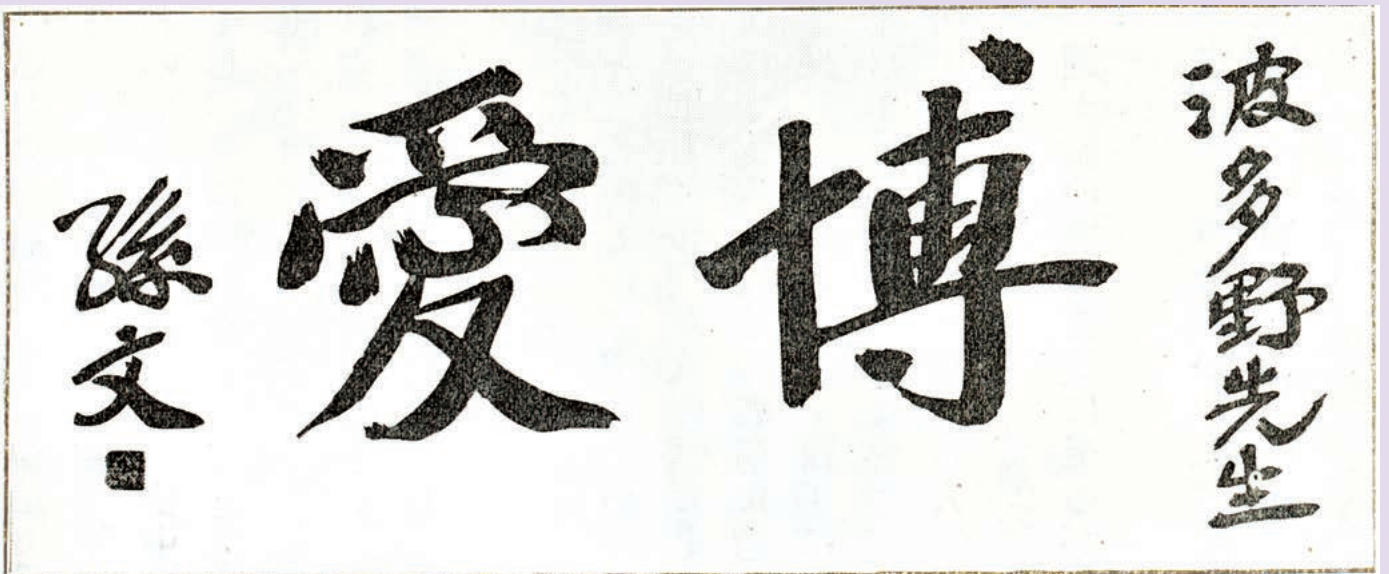 波多野先生
博愛
孫文